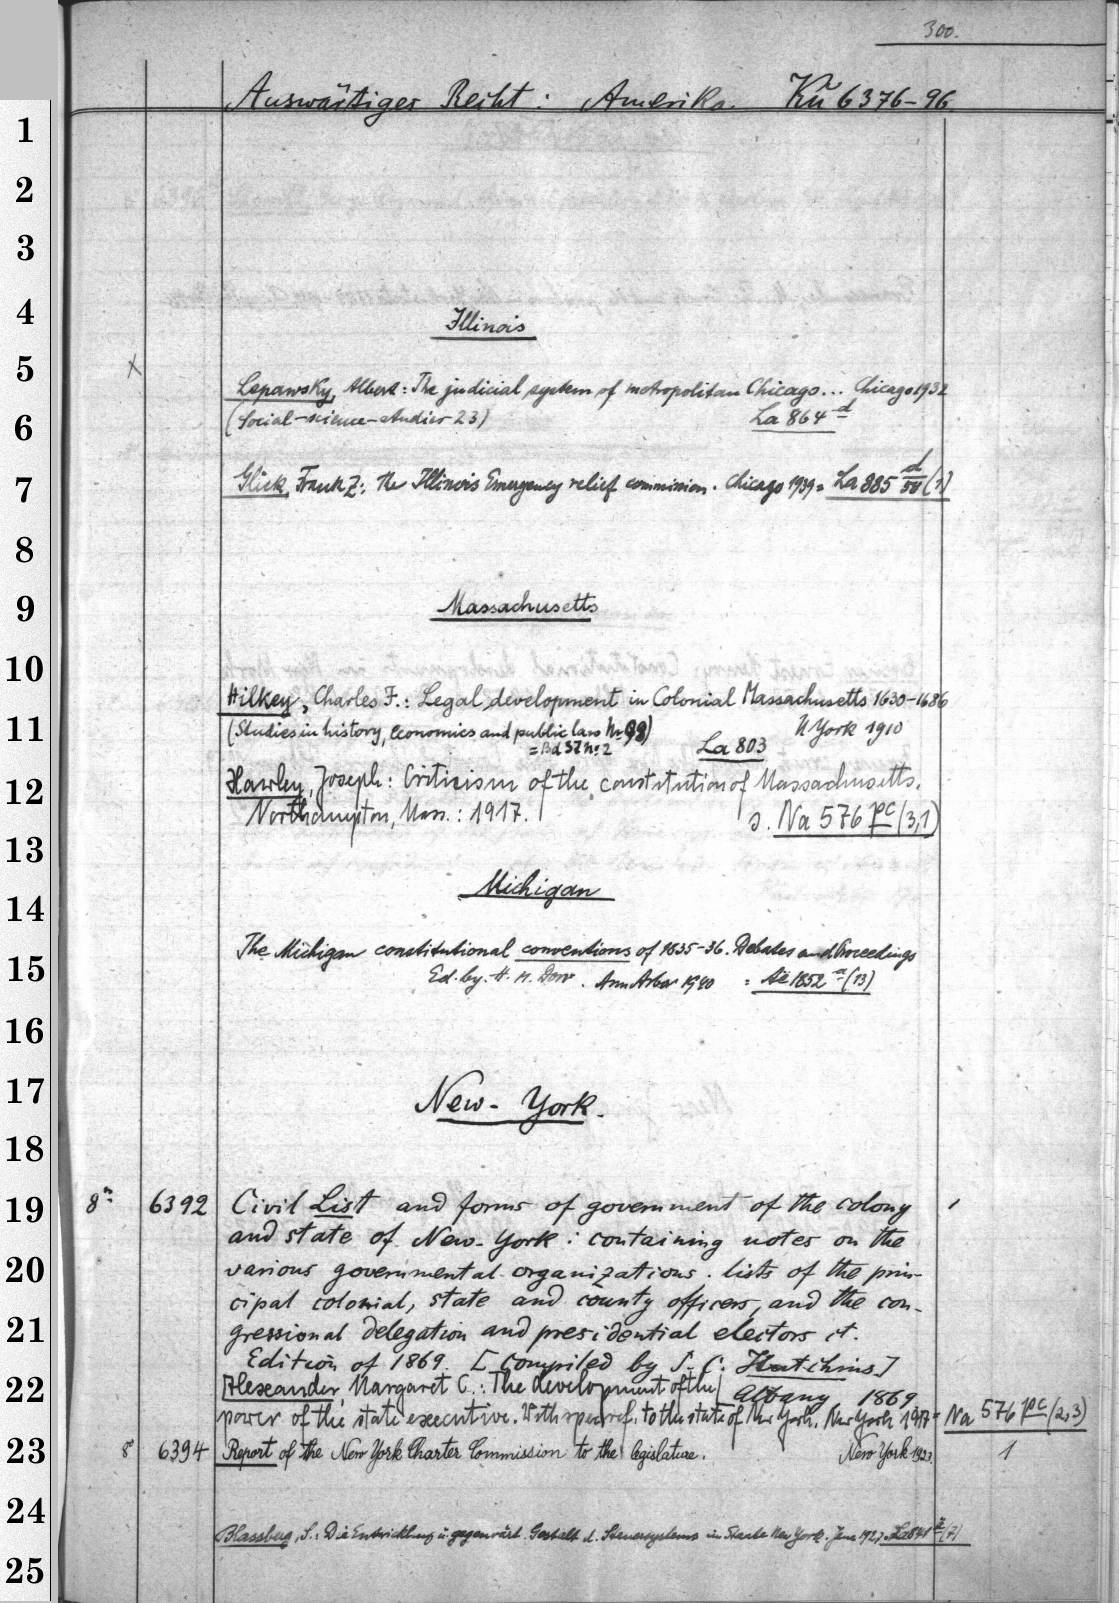 300.
Auswärtiges Recht: Amerika. Kü 6376-96
Illinois
Lepawsky, Albert: The judicial system of metropolitan Chicago... Chicago 1932
(Social-science-studies 23) La 864 d
Glick, Frank Z: the Illinois Emergency relief commission. Chicago 1939 = La 885 d/50 (1)
Massachusetts
Hilkey, Charles F.: Legal development in Colonial Massachusetts 1630-1686
(Studies in history, economics and public law Nr 98) N York 1910
= Bd 37 Nr. 2 La 803
Hawley, Joseph: Criticism of the constitution of Massachusetts.
Northampton, Mass.: 1917. s. Na 576 pc (3,1)
Michigan
The Michigan constitutional conventions of 1835-36. Debates and Proceedings
Ed. by. H. M. Dorr. Ann Arbor 1940 = Aë 1852 a (13)
New-York.
8° 6392 Civil List and forms of government of the colony 1
and state of New-York: containing notes on the
various governmental organizations. lists of the prin-
cipal colonial, state and county officers, and the con-
gressional delegation and presidential electors
Edition of 1869. [compiled by S. C. Hutchins.]
Albany 1869
Alexander, Margaret C.: The development of the
power of the state executive. With spec. ref. to the state of New York. New York 1917 = Na 576 pc (2,3)
8° 6394 Report of the New York Charter Commission to the legislature. New York 1923. 1
S.: Die Entwicklung u. gegenwärt. Gestalt d. Steuersystems im Staate New York. Jena 1927